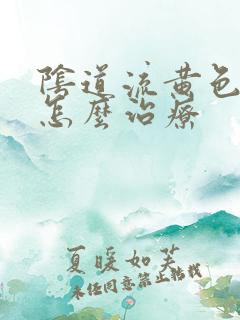 陰道流黃色
怎麼治療
夏暖如芙
未经同意禁止转载